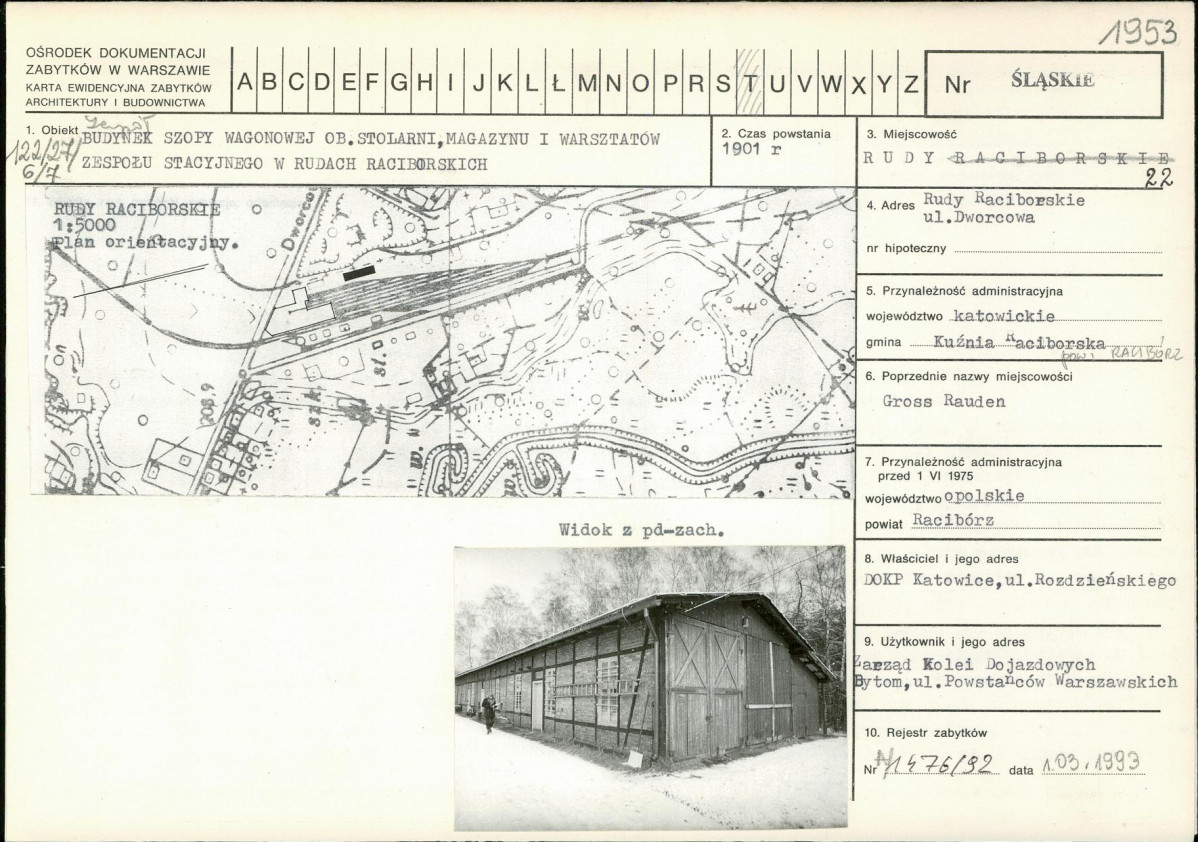 1953
OŚRODEK DOKUMENTACJI
ZABYTKÓW W WARSZAWIE
KARTA EWIDENCYJNA ZABYTKÓW
ARCHITEKTURY I BUDOWNICTWA
A B C D E F G H I J K L Ł M N O P R S T U V W X Y Z
Nr ŚLĄSKIE
1. Obiekt Zespół
BUDYNEK SZOPY WAGONOWEJ OB.STOLARNI,MAGAZYNU I WARSZTATÓW
122/27/
ZESPOŁU STACYJNEGO W RUDACH RACIBORSKICH
6/7
2. Czas powstania
1901 r
3. Miejscowość
RUDY RACIBORSKIE
22
RUDY RACIBORSKIE
1:5000
Plan orientacyjny.
Dworco
208,9
szk.
st.
w.
4. Adres Rudy Raciborskie
ul.Dworcowa
nr hipoteczny
5. Przynależność administracyjna
województwo katowickie
gmina Kuźnia Raciborska
pow. RACIBÓRZ
6. Poprzednie nazwy miejscowości
Gross Rauden
7. Przynależność administracyjna
przed 1 VI 1975
województwo opolskie
powiat Racibórz
Widok z pd-zach.
8. Właściciel i jego adres
DOKP Katowice,ul.Rozdzieńskiego
9. Użytkownik i jego adres
Zarząd Kolei Dojazdowych
Bytom,ul.Powstańców Warszawskich
10. Rejestr zabytków
Nr A/1476/92 data 1.03.1993